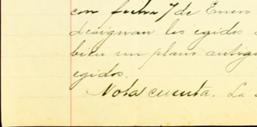 con fecha 7 de Enero
designan los egidos
bien un plano autog
egidos.
Nota cuenta. La